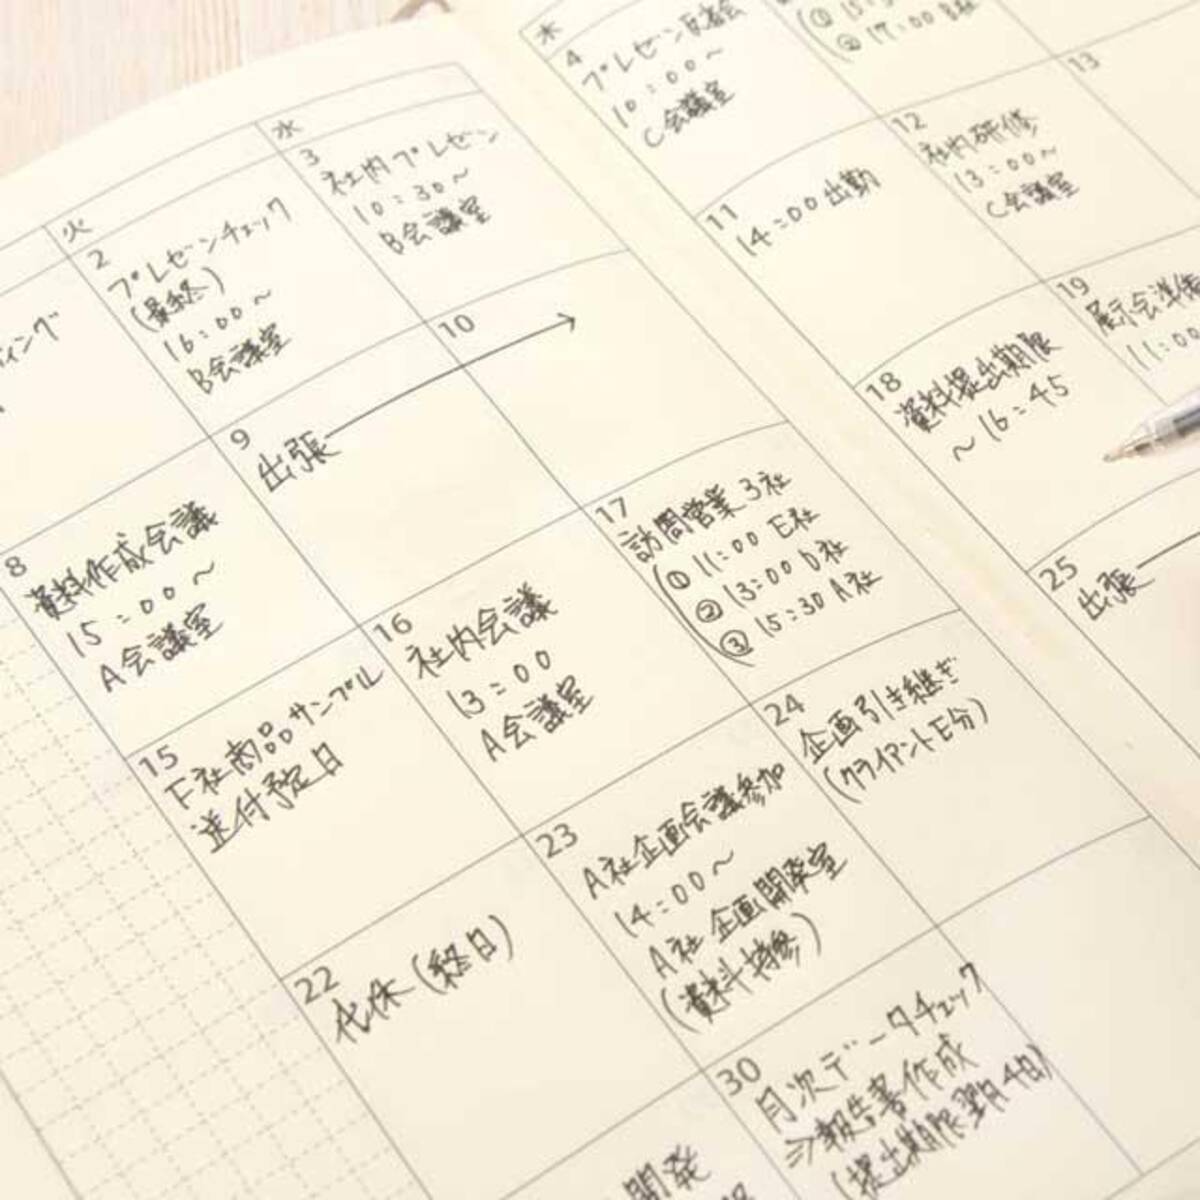 火
水
木
ィング
2
プレゼンチェック
(最終)
16:00〜
B会議室
3
社内プレゼン
10:30〜
B会議室
4
プレゼン反省会
10:00〜
C会議室
② 17:00 B社
8
資料作成会議
15:00〜
A会議室
9
出張
10
11
14:00出勤
12
社内研修
13:00〜
C会議室
13
15
F社商品サンプル
送付予定日
16
社内会議
13:00
A会議室
17
訪問営業 3社
(① 11:00 E社
② 13:00 D社
③ 15:30 A社
18
資料提出期限
〜16:45
19
展示会準備
11:00
22
代休(終日)
23
A社企画会議参加
14:00〜
A社企画開発室
(資料持参)
24
企画引き継ぎ
(クライアントE分)
25
出張
30
月次データチェック
⇒報告書作成
(提出期限翌月4日)
開発